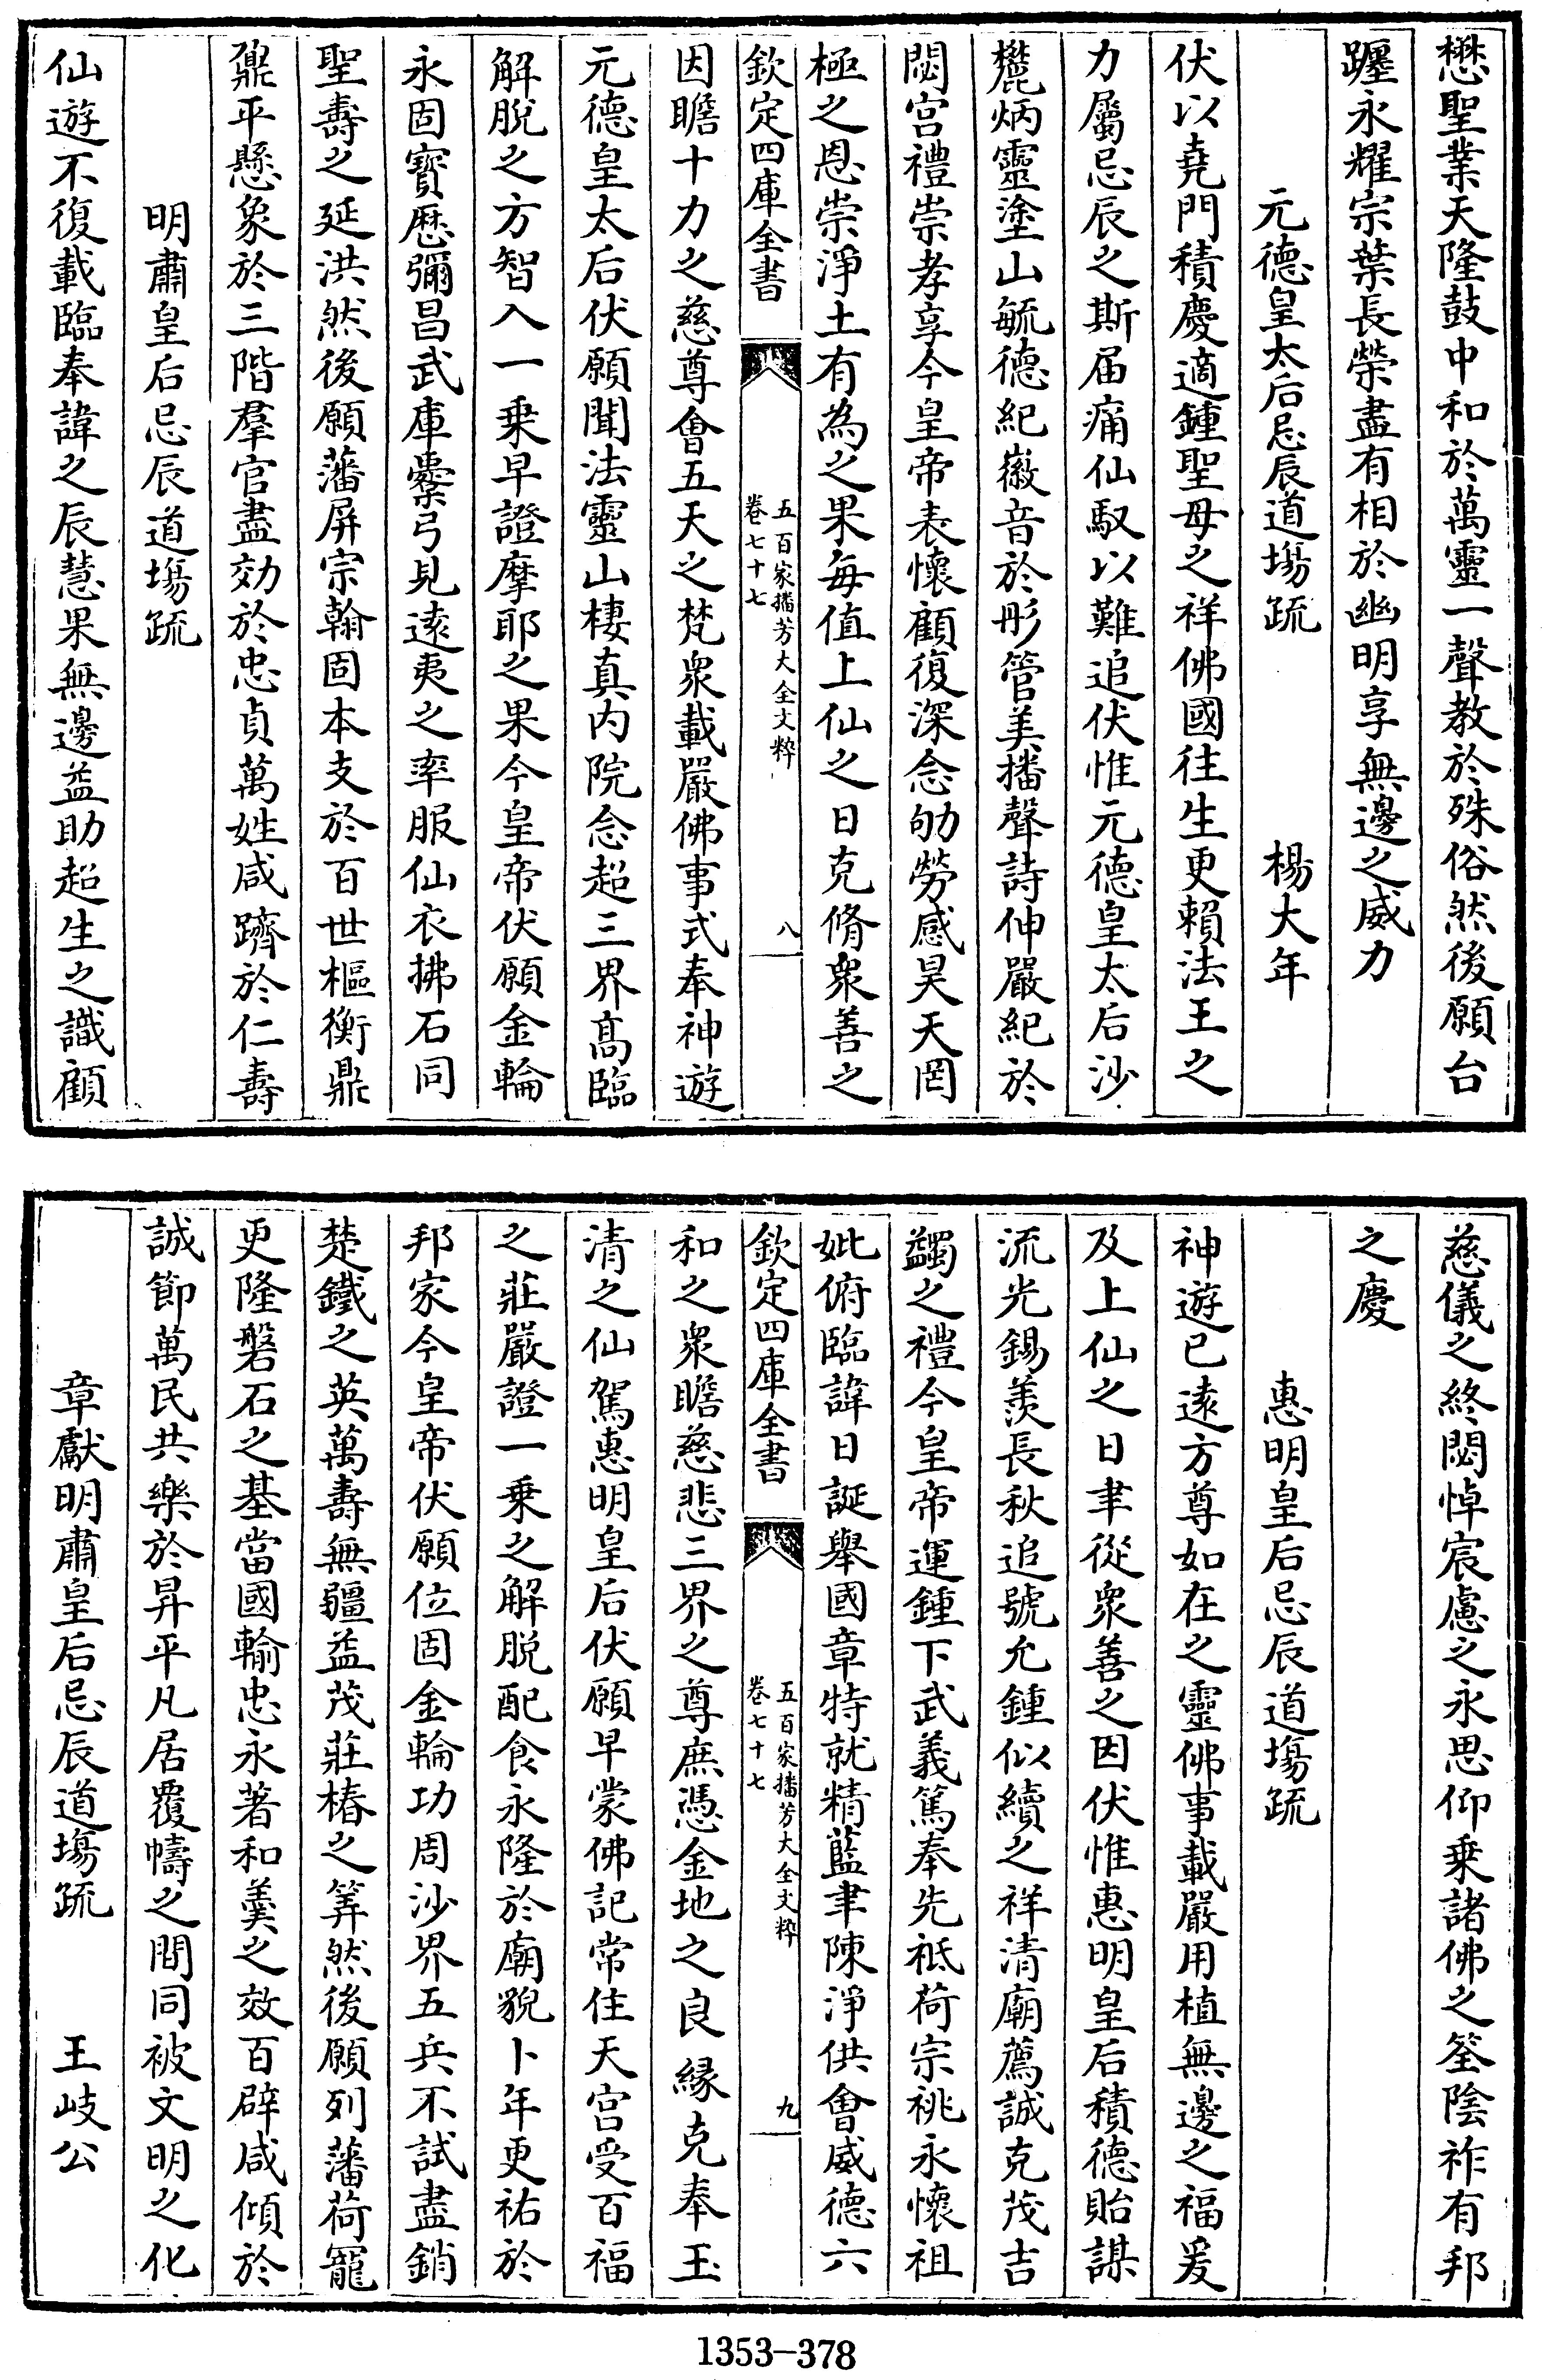 懋聖業天隆鼓中和於萬靈一聲教於殊俗然後願台
躔永耀宗葉長榮盡有相於幽明享無邊之威力
元德皇太后忌辰道塲疏 楊大年
伏以堯門積慶適鍾聖母之祥佛國往生更賴法王之
力屬忌辰之斯届痛仙馭以難追伏惟元德皇太后沙
麓炳靈塗山毓德紀徽音於彤管美播聲詩伸嚴紀於
閟宮禮崇孝享今皇帝表懷顧復深念劬勞感昊天罔
極之恩崇淨土有為之果每值上仙之日克脩衆善之
欽定四庫全書
五百家播芳大全文粹
卷七十七
八
因瞻十力之慈尊會五天之梵衆載嚴佛事式奉神遊
元德皇太后伏願聞法靈山棲真内院念超三界高臨
解脫之方智入一乗早證摩耶之果今皇帝伏願金輪
永固寳厯彌昌武庫櫜弓見逺夷之率服仙衣拂石同
聖壽之延洪然後願藩屏宗翰固本支於百世樞衡鼎
鼐平懸象於三階羣官盡効於忠貞萬姓咸躋於仁壽
明肅皇后忌辰道塲疏
仙遊不復載臨奉諱之辰慧果無邊益助超生之識顧
慈儀之終閟悼宸慮之永思仰乗諸佛之筌陰祚有邦
之慶
惠明皇后忌辰道塲疏
神遊已逺方尊如在之靈佛事載嚴用植無邊之福爰
及上仙之日聿從衆善之因伏惟惠明皇后積德貽謀
流光錫羡長秋追號允鍾似續之祥清廟薦誠克茂吉
蠲之禮今皇帝運鍾下武義篤奉先祗荷宗祧永懷祖
妣俯臨諱日誕舉國章特就精藍聿陳淨供會威德六
欽定四庫全書
五百家播芳大全文粹
卷七十七
九
和之衆瞻慈悲三界之尊庶憑金地之良緣克奉玉
清之仙駕惠明皇后伏願早蒙佛記常住天宮受百福
之莊嚴證一乗之解脱配食永隆於廟貌卜年更祐於
邦家今皇帝伏願位固金輪功周沙界五兵不試盡銷
楚鐵之英萬壽無疆益茂莊椿之筭然後願列藩荷寵
更隆磐石之基當國輸忠永著和羹之效百辟咸傾於
誠節萬民共樂於昇平凡居覆幬之間同被文明之化
章獻明肅皇后忌辰道塲疏 王岐公
1353-378